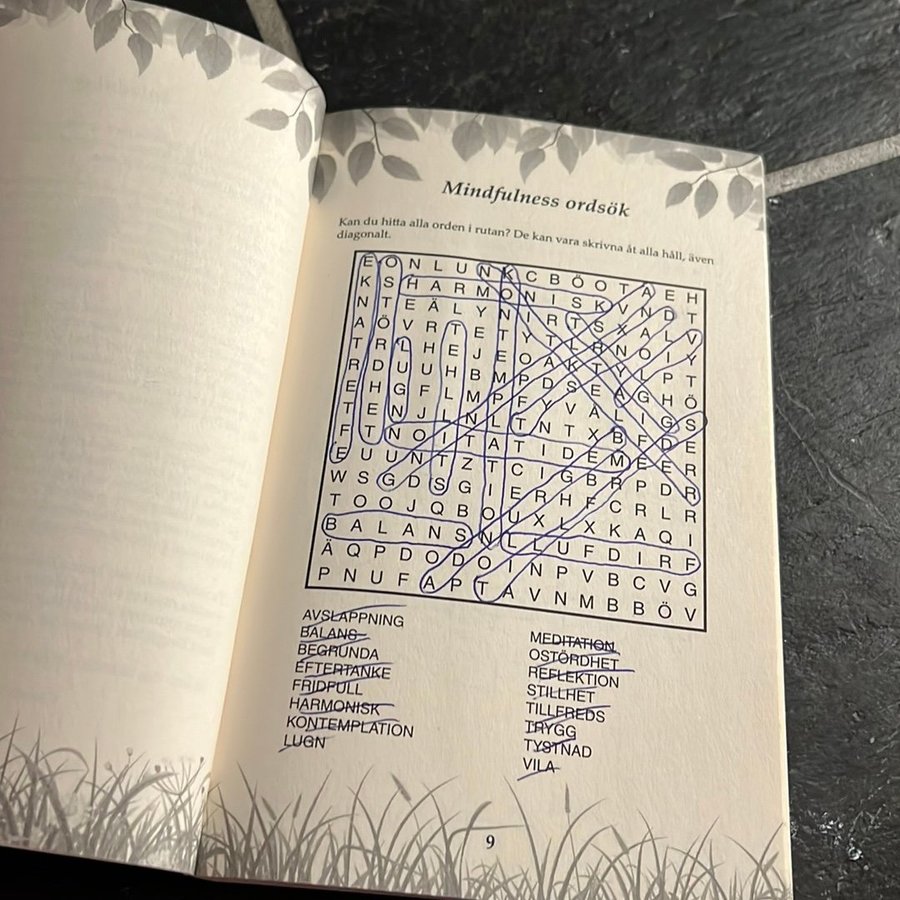 Mindfulness ordsök
Kan du hitta alla orden i rutan? De kan vara skrivna åt alla håll, även
diagonalt.
E O N L U N K C B Ö O T A E H
K S H A R M O N I S K V N D T
N T E Ä L Y N I R T S X A L V
A Ö V R T E T Y T L R N O I Y
T R L H E J E O A K T Y L P T
R D U U H B M P D S E A G H Ö
E H G F L M P F Y V A L I G S
T E N J L N L T N T X B F D E
F T N O I T A T I D E M E E R
E U U N T Z T C I G B R P D R
W S G D S G I E R H F C R L R
T O O J Q B O U X L X K A Q I
B A L A N S N L L U F D I R F
Ä Q P D O D O I N P V B C V G
P N U F A P T A V N M B B Ö V
AVSLAPPNING
BALANS
BEGRUNDA
EFTERTANKE
FRIDFULL
HARMONISK
KONTEMPLATION
LUGN
MEDITATION
OSTÖRDHET
REFLEKTION
STILLHET
TILLFREDS
TRYGG
TYSTNAD
VILA
9